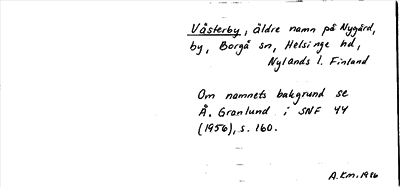 Våsterby, äldre namn på Nygård,
by, Borgå sn, Helsinge hd,
Nylands l. Finland
Om namnets bakgrund se
Å. Granlund i SNF 44
(1956), s. 160.
A.Km. 1986